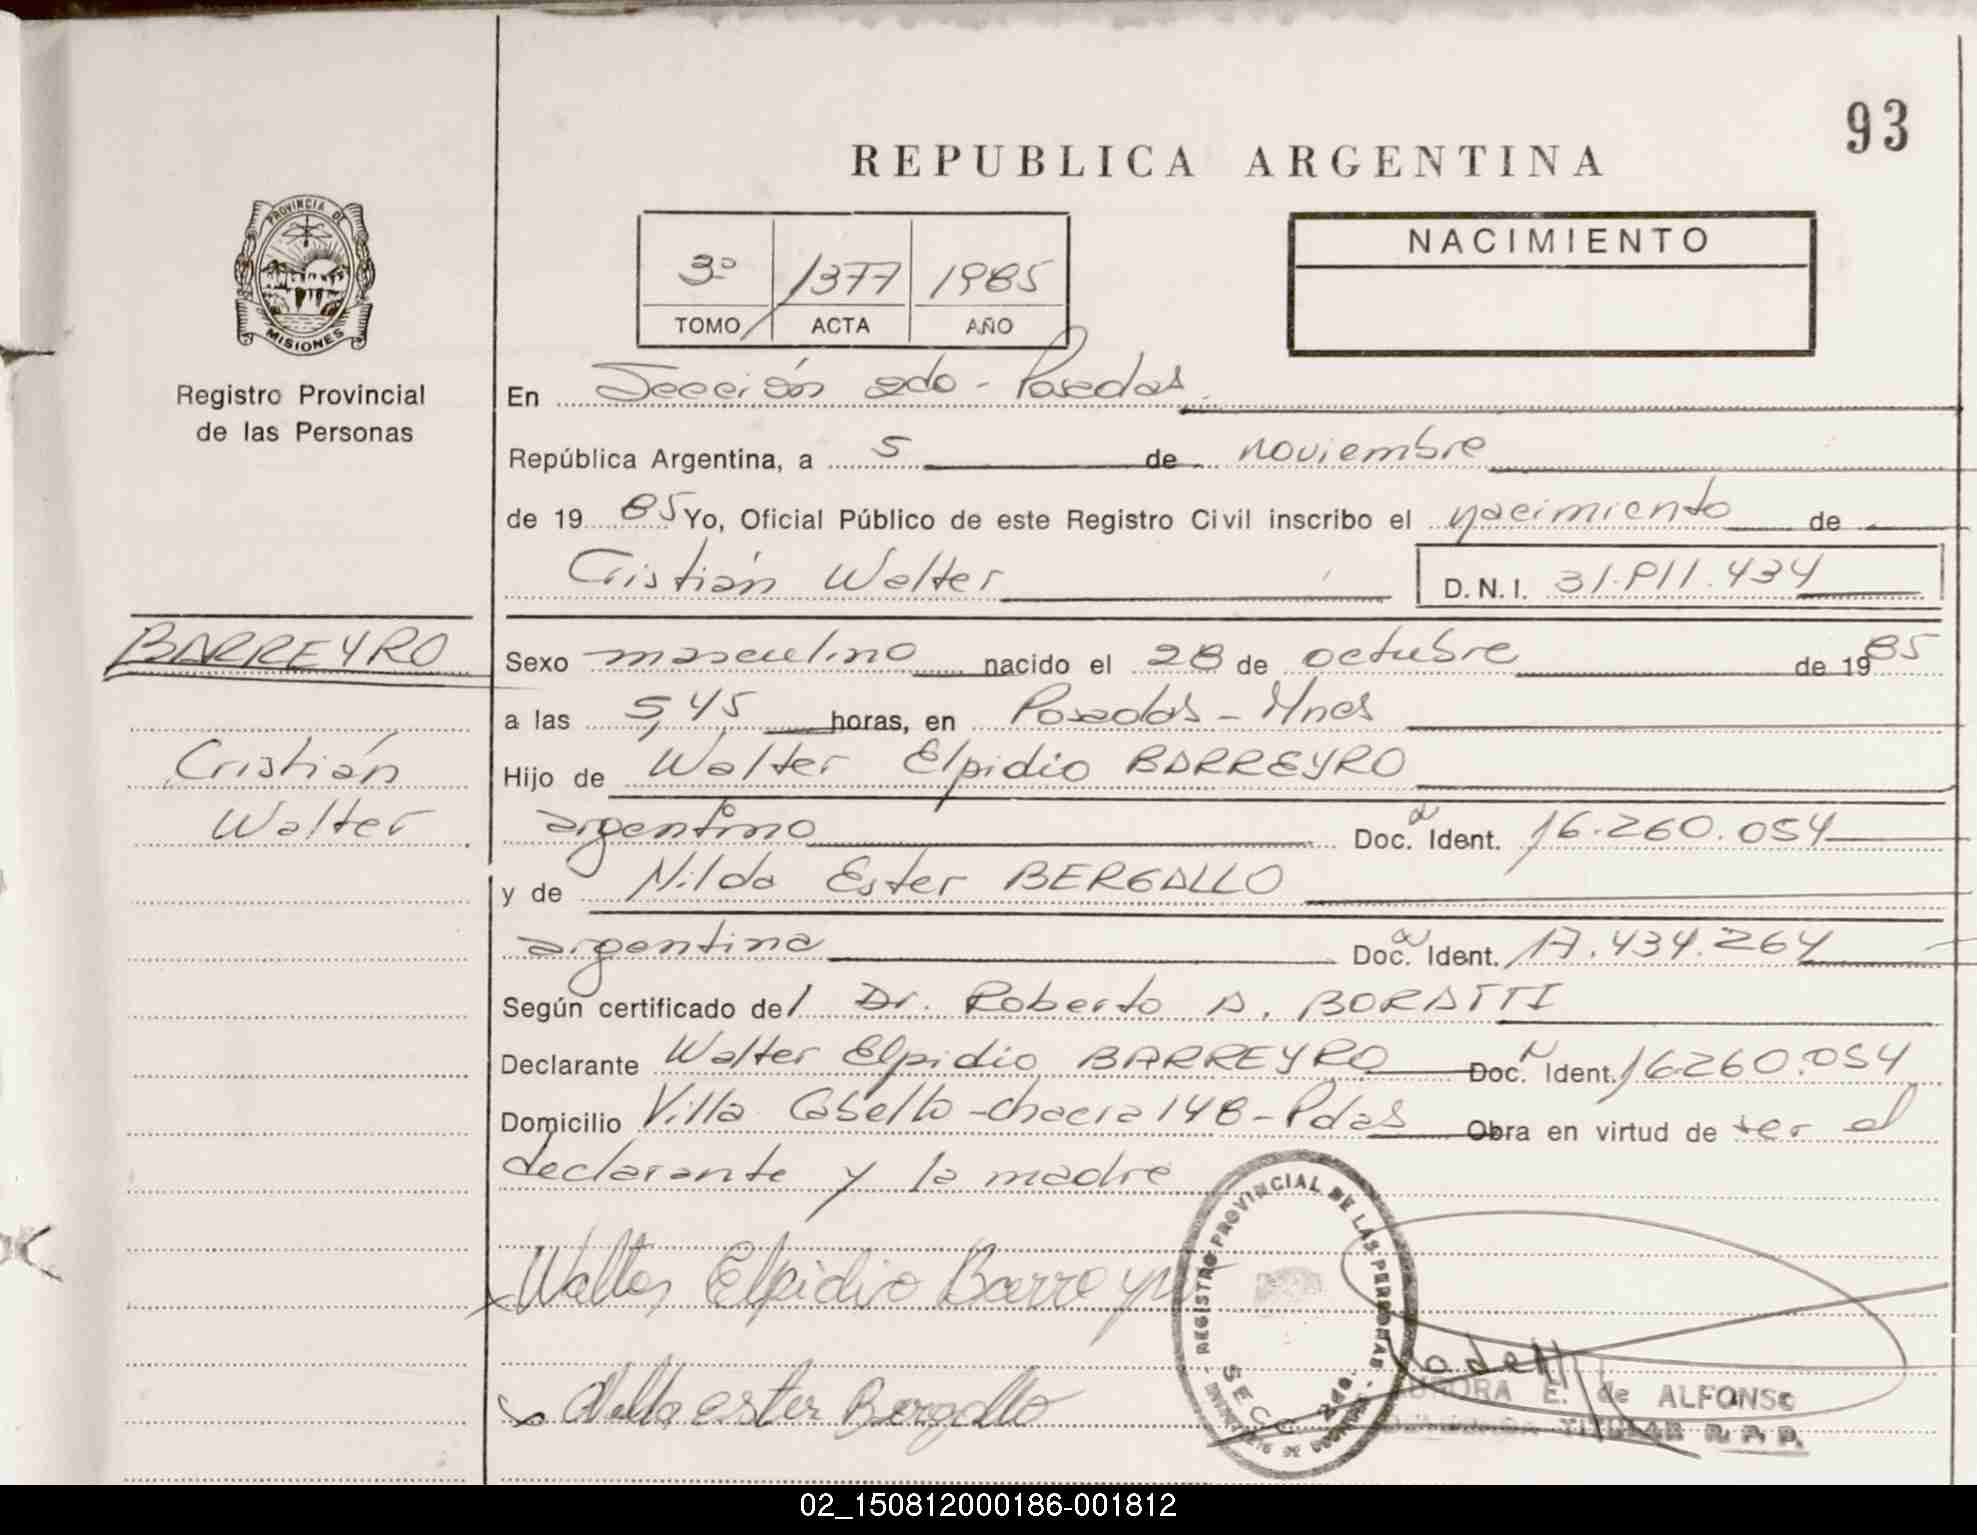 93
REPUBLICA ARGENTINA
PROVINCIA DE
MISIONES
Registro Provincial
de las Personas
3º 1377 1985
TOMO ACTA AÑO
NACIMIENTO
En Sección 2do - Posadas
República Argentina, a 5 de noviembre
de 19 85 Yo, Oficial Público de este Registro Civil inscribo el nacimiento de
Cristián Walter D.N.I. 31.811.434
BARREYRO
Cristián
Walter
Sexo masculino nacido el 28 de octubre de 19 85
a las 5,45 horas, en Posadas - Mnes
Hijo de Walter Elpidio BARREYRO
argentino Doc. Ident. 16.260.054
y de Nilda Ester BERGALLO
argentina Doc. Ident. 17.434.264
Según certificado del Dr. Roberto A. BORATTI
Declarante Walter Elpidio BARREYRO Doc. Ident. 16260.054
Domicilio Villa Cabello - chacra 148 - Pdas Obra en virtud de ser el
declarante y la madre
Walter Elpidio Barreyro
Nilda ester Bergallo
REGISTRO PROVINCIAL DE LAS PERSONAS
SECC. 2da.
E. de ALFONSO
TITULAR R. P. P.
02_150812000186-001812